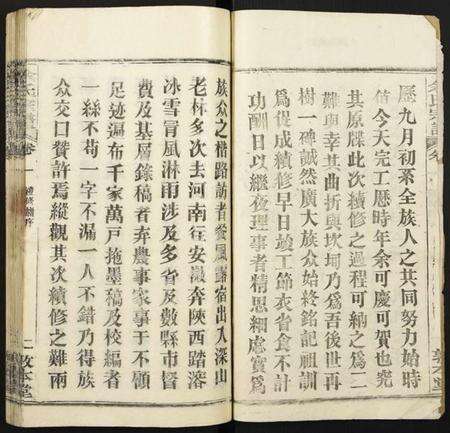 歷九月初系全族人之共同努力始時
值今天完工歷時年余可慶可賀也究
其原牒此次續修之過程可納之爲二
難與幸其曲折與坎坷乃爲吾後世再
樹一碑誠然廣大族众始終銘記祖訓
爲促成續修早日竣工節衣省食不計
功酬日以繼夜理事者精思細慮實爲
族众之楷路訪者餐風露宿出入深山
老林多次去河南往安徽奔陝西踏溶
冰雪冒風淋雨涉及多省及數縣市督
費及基層錄稿者弃農事家事于不顧
足迹遍布千家萬戶拖墨稿及校編者
一絲不苟一字不漏一人不錯乃得族
众交口贊許焉縱觀其次續修之難兩
卷一
二